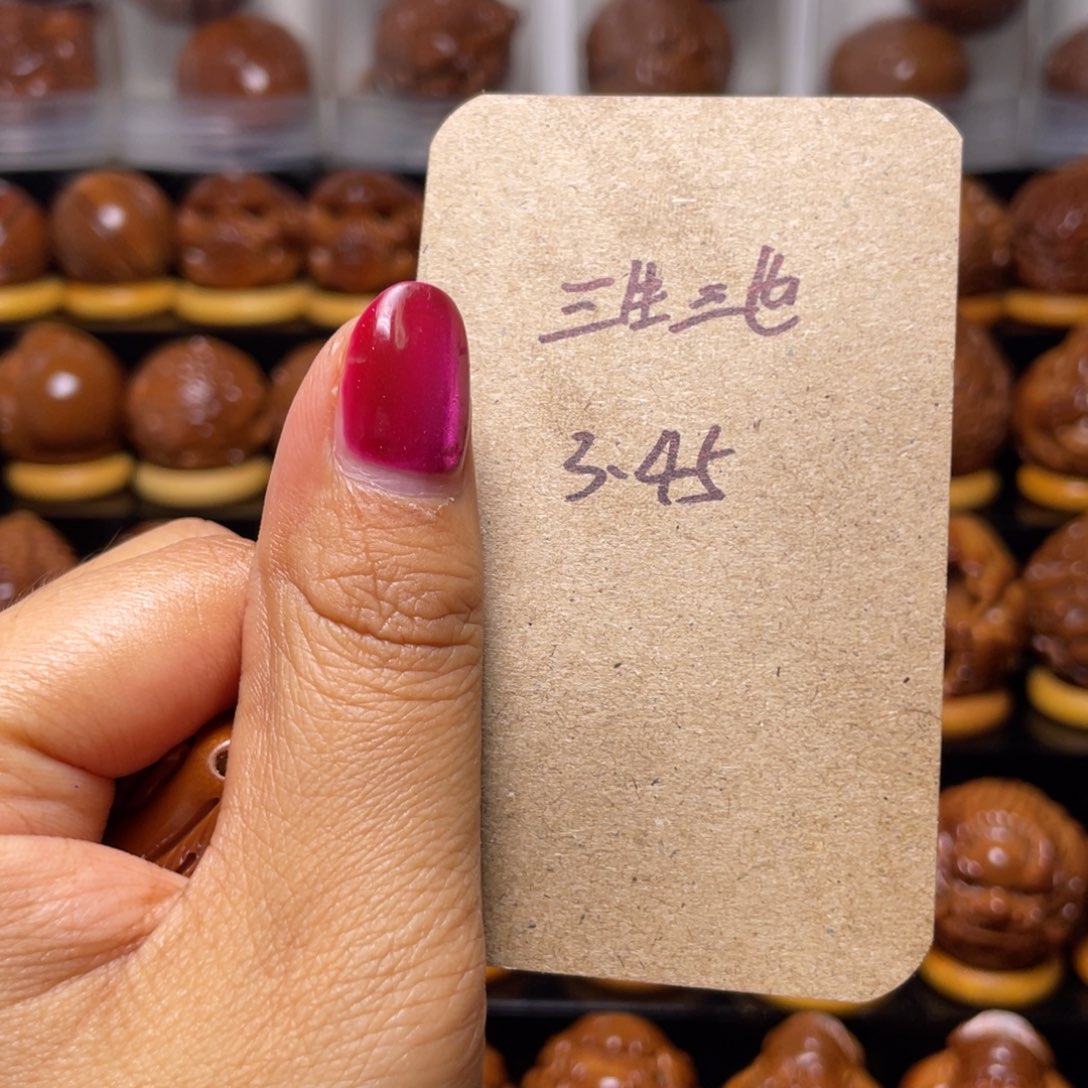 三生三世
3.45